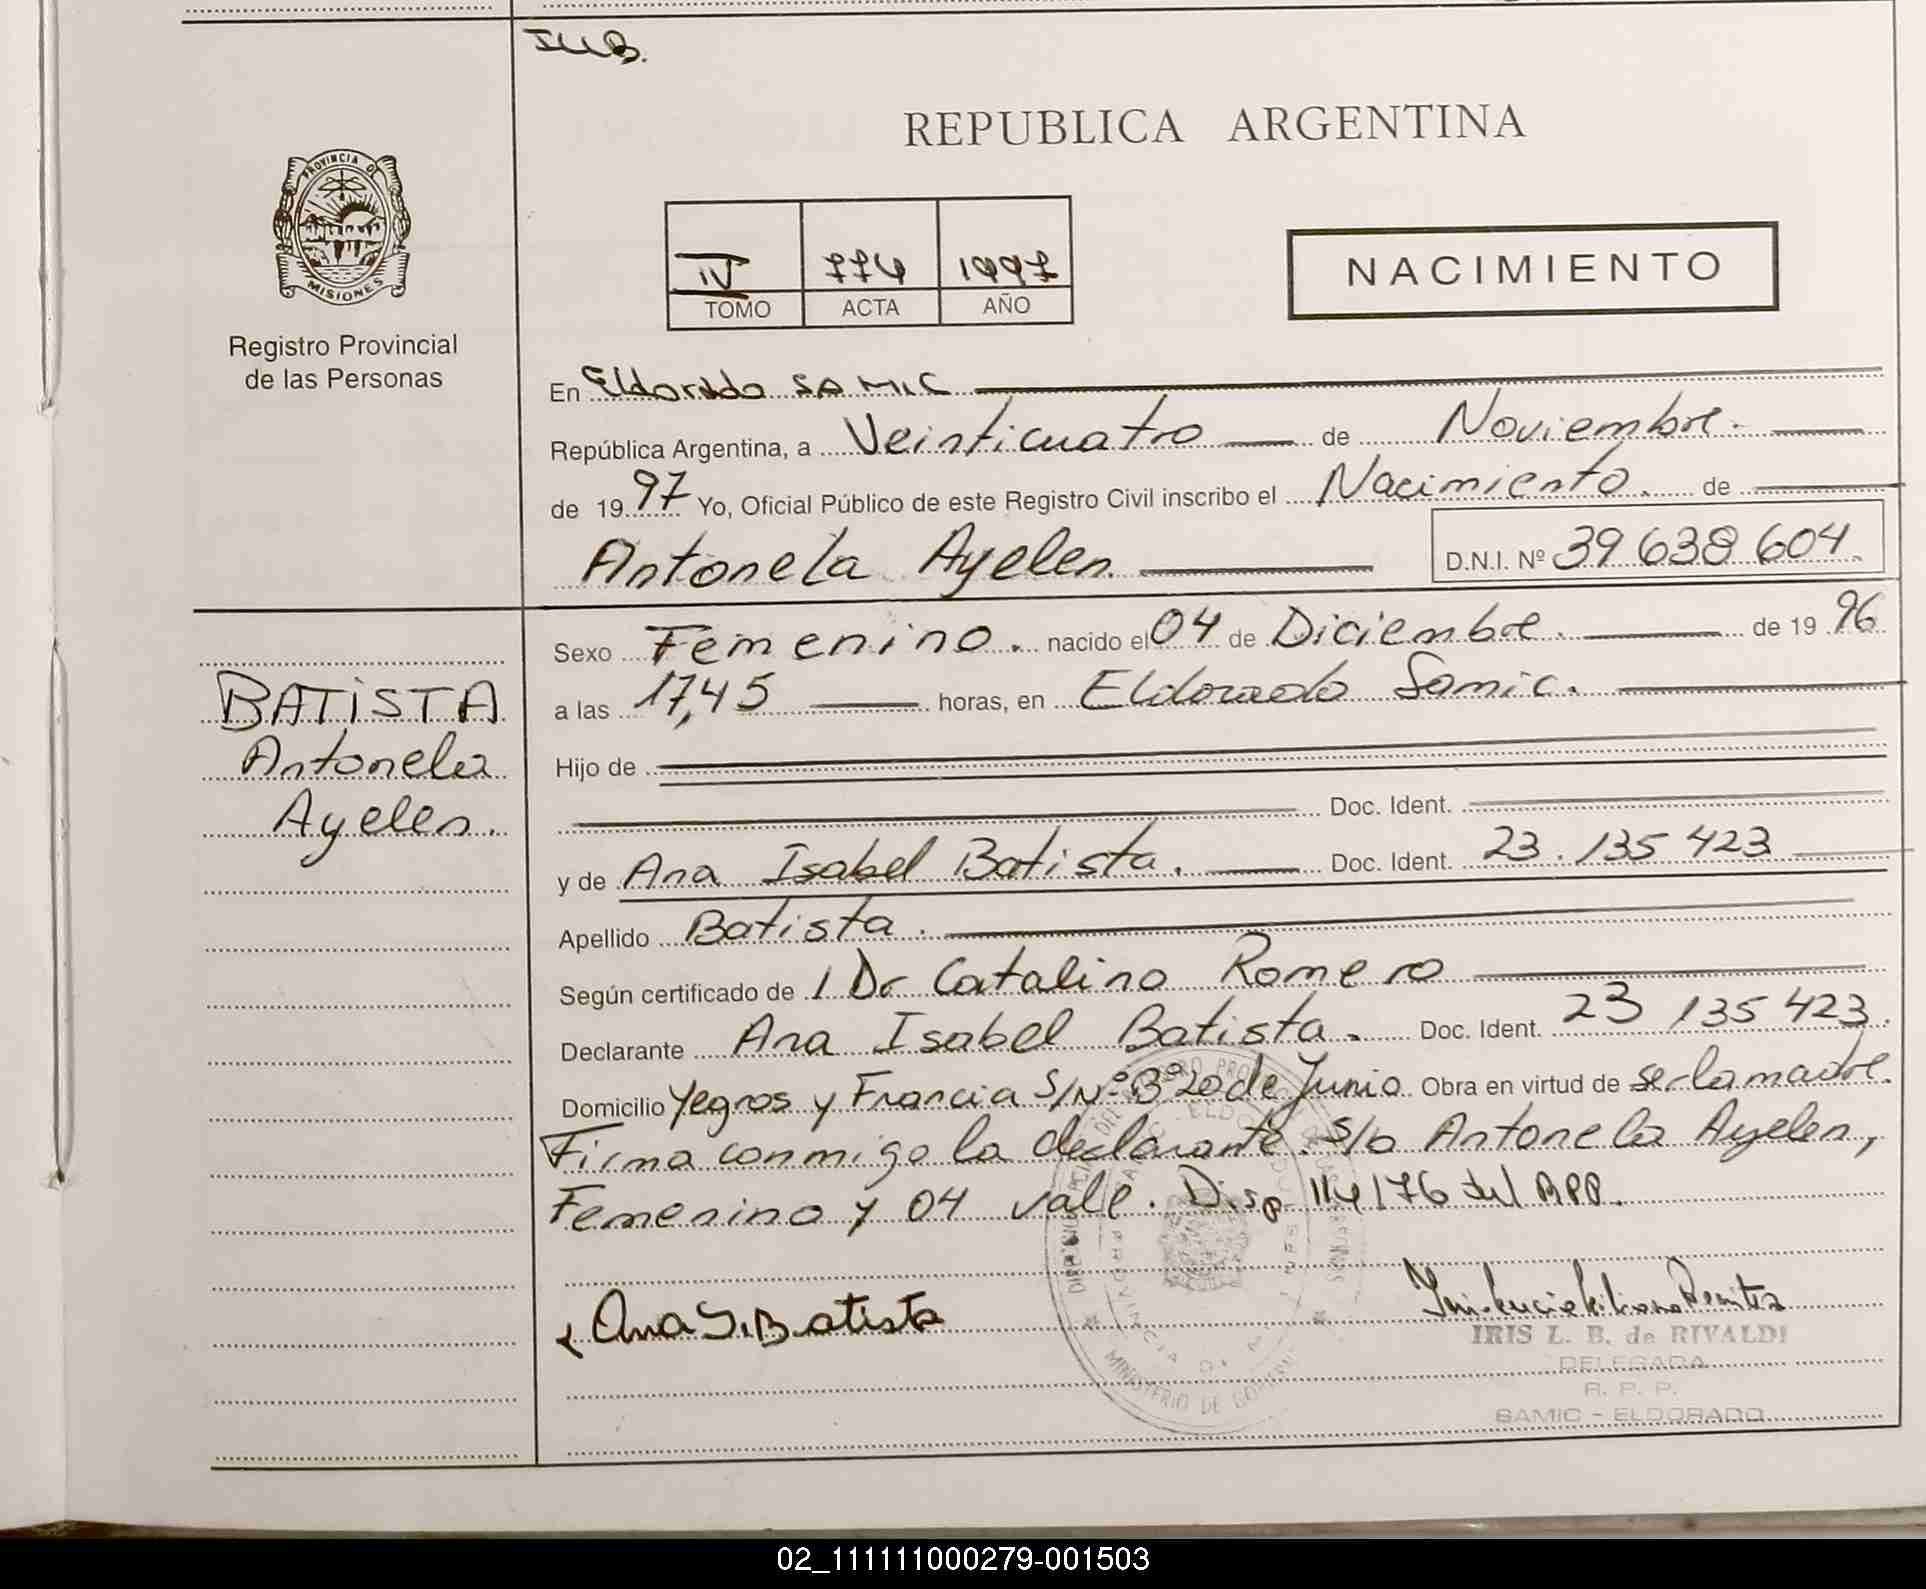 REPUBLICA ARGENTINA
PROVINCIA DE
MISIONES
Registro Provincial
de las Personas
IV 774 1997
TOMO ACTA AÑO
NACIMIENTO
En Eldorado SAMIC
República Argentina, a Veinticuatro de Noviembre.
de 1997 Yo, Oficial Público de este Registro Civil inscribo el Nacimiento. de
Antonela Ayelen. D.N.I. Nº 39 638 604
Sexo Femenino. nacido el 04 de Diciembre. de 1996
a las 17,45 horas, en Eldorado Samic.
BATISTA
Antonela
Ayelen.
Hijo de
Doc. Ident.
y de Ana Isabel Batista. Doc. Ident. 23.135 423
Apellido Batista.
Según certificado de 1 Dr Catalino Romero
Declarante Ana Isabel Batista. Doc. Ident. 23 135 423
Domicilio Yegros y Francia S/Nº Bº 20 de Junio Obra en virtud de ser la madre.
Firma conmigo la declarante. S/b Antonela Ayelen,
Femenino y 04 vale. Disp 114/76 del RPP.
Ana I. Batista
IRIS L. B. de RIVALDI
DELEGADA
R. P. P.
SAMIC - ELDORADO
02_111111000279-001503